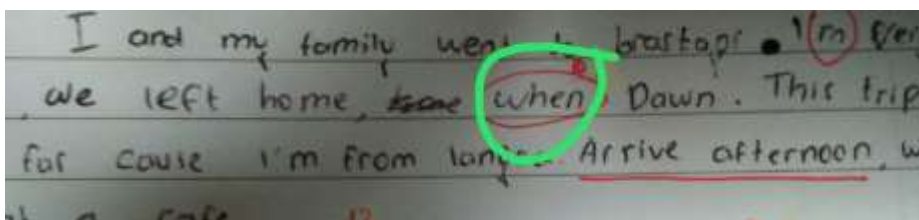 I and my family went to brastagi. I'm ver
we left home, when Dawn. This trip
far cause i'm from langsa. Arrive afternoon, w
a cafe